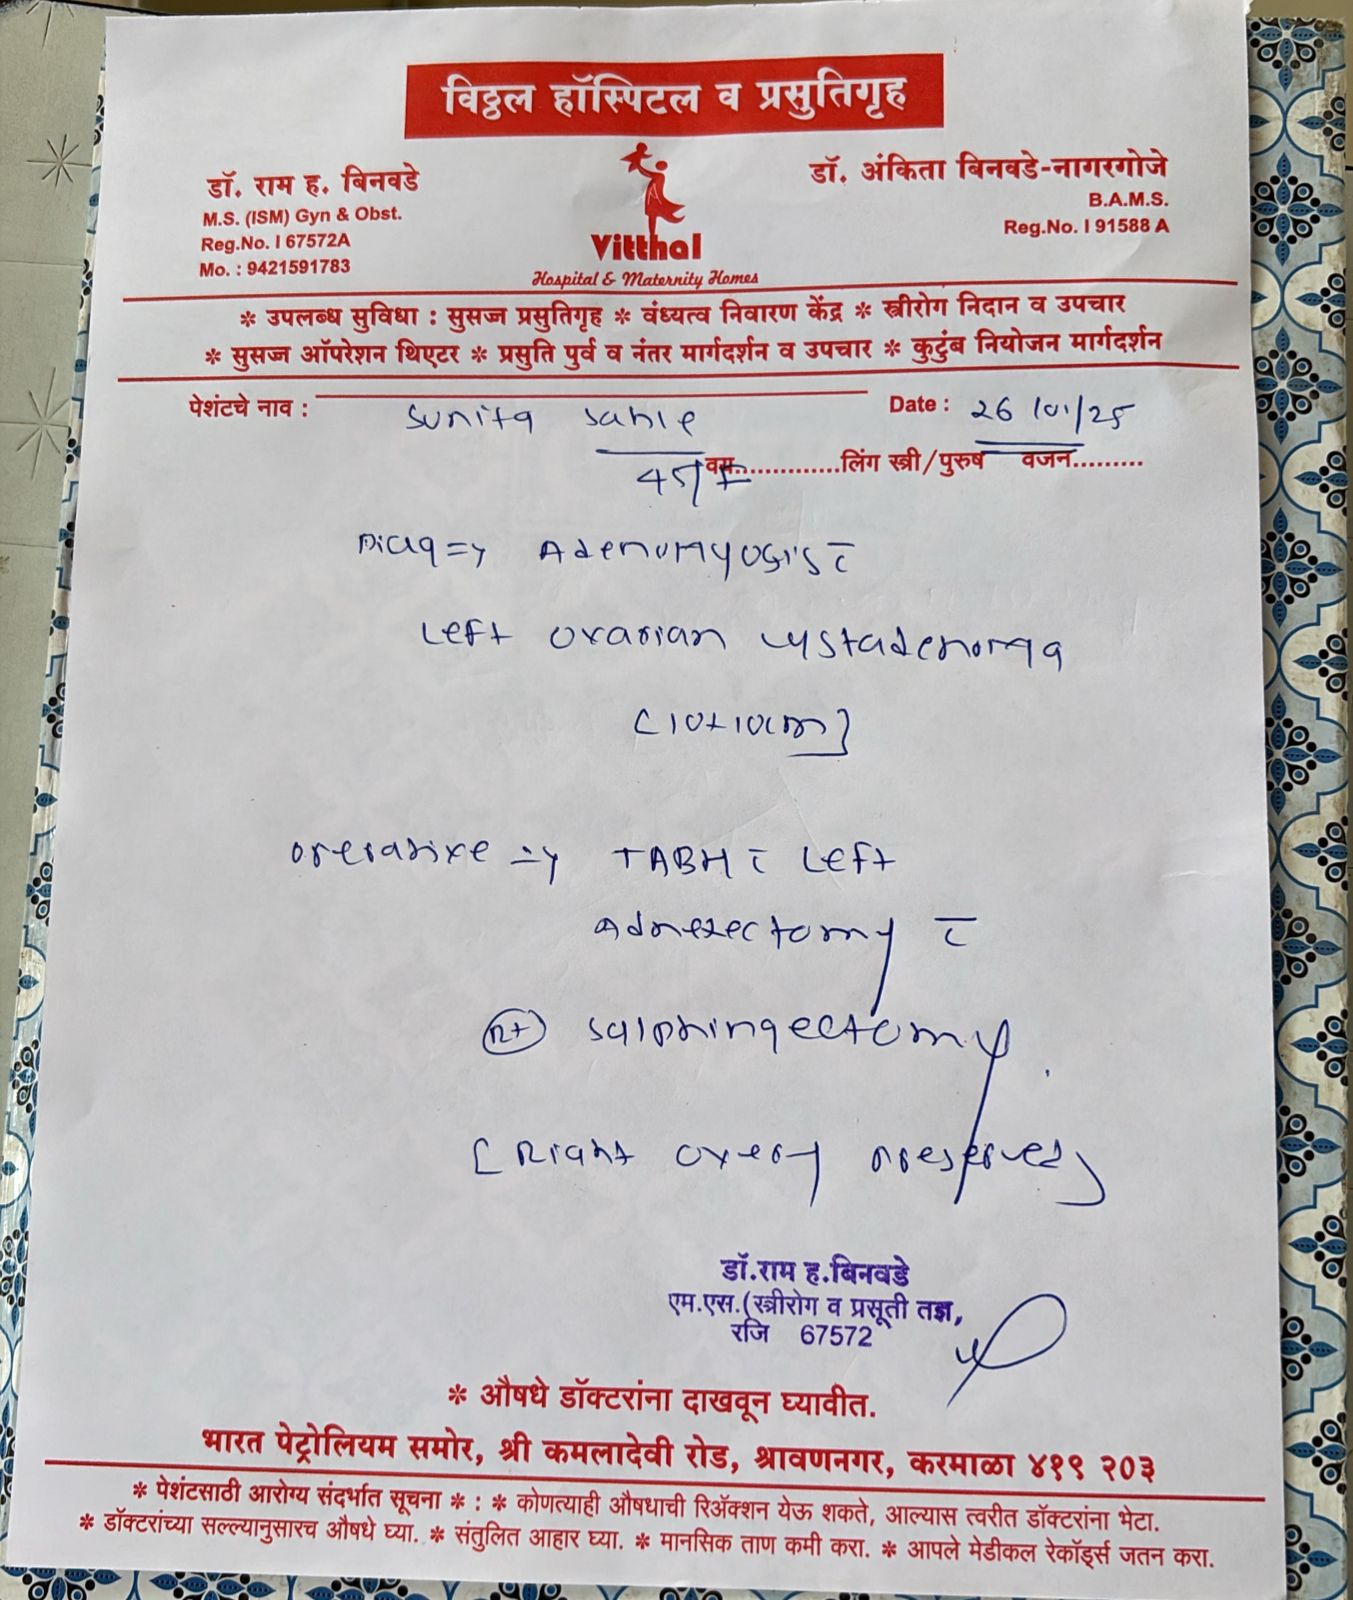 विठ्ठल हॉस्पिटल व प्रसुतिगृह
डॉ. राम ह. बिनवडे
M.S. (ISM) Gyn & Obst.
Reg.No. I 67572A
Mo. : 9421591783
Vitthal
Hospital & Maternity Homes
डॉ. अंकिता बिनवडे-नागरगोजे
B.A.M.S.
Reg.No. I 91588 A
* उपलब्ध सुविधा : सुसज्ज प्रसुतिगृह * वंध्यत्व निवारण केंद्र * स्त्रीरोग निदान व उपचार
* सुसज्ज ऑपरेशन थिएटर * प्रसुति पुर्व व नंतर मार्गदर्शन व उपचार * कुटुंब नियोजन मार्गदर्शन
पेशंटचे नाव : Sunita Sable Date : 26/01/25
45/F वय.............लिंग स्त्री/पुरुष वजन.........
Diag => Adenomyosis c̄
Left ovarian cystadenoma
[10+10cm]
operative => TABH c̄ Left
Adnexectomy c̄
Rt salphingectomy
[Right overy preserved]
डॉ.राम ह.बिनवडे
एम.एस.(स्त्रीरोग व प्रसूती तज्ञ,
रजि 67572
* औषधे डॉक्टरांना दाखवून घ्यावीत.
भारत पेट्रोलियम समोर, श्री कमलादेवी रोड, श्रावणनगर, करमाळा ४१९ २०३
* पेशंटसाठी आरोग्य संदर्भात सूचना * : * कोणत्याही औषधाची रिॲक्शन येऊ शकते, आल्यास त्वरीत डॉक्टरांना भेटा.
* डॉक्टरांच्या सल्ल्यानुसारच औषधे घ्या. * संतुलित आहार घ्या. * मानसिक ताण कमी करा. * आपले मेडीकल रेकॉर्ड्स जतन करा.